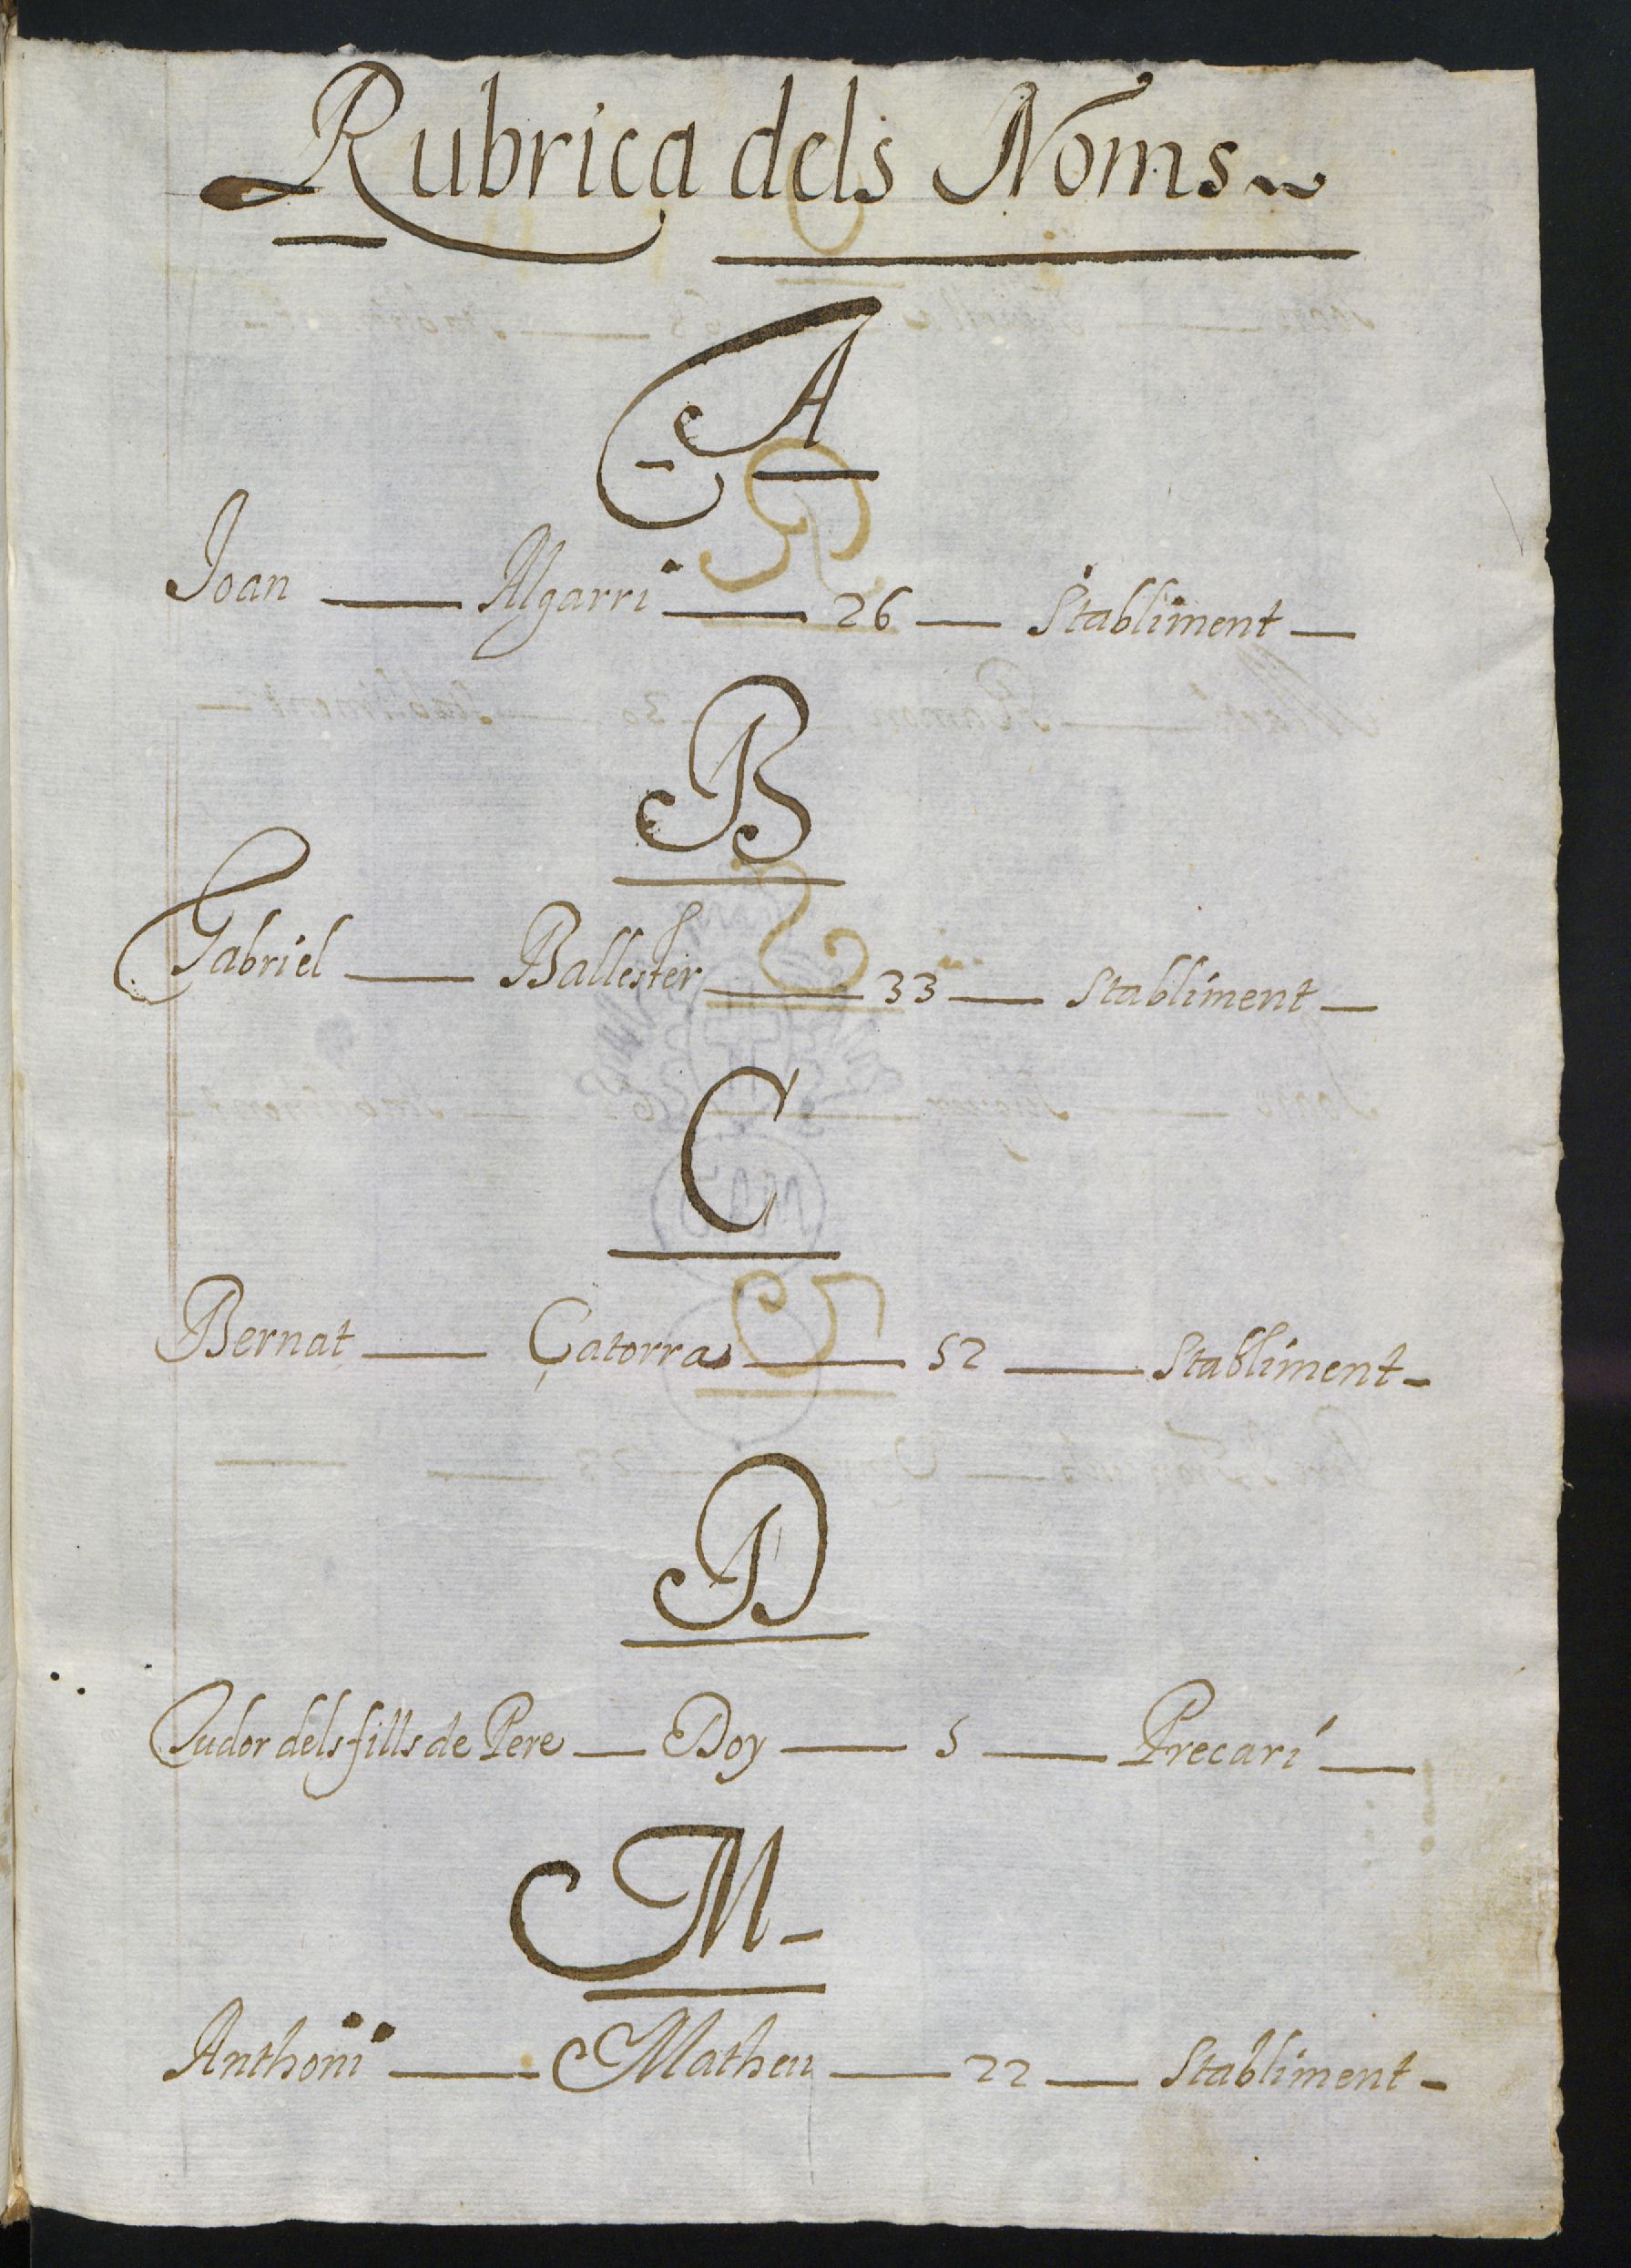 Rubrica dels Noms
A
Joan — Algarri — 26 — Stabliment —
B
Gabriel — Ballester — 33 — Stabliment —
C
Bernat — Çatorras — 52 — Stabliment —
D
Tudor dels fills de Pere — Doy — 5 — Precari —
M
Anthoni — Matheu — 22 — Stabliment —